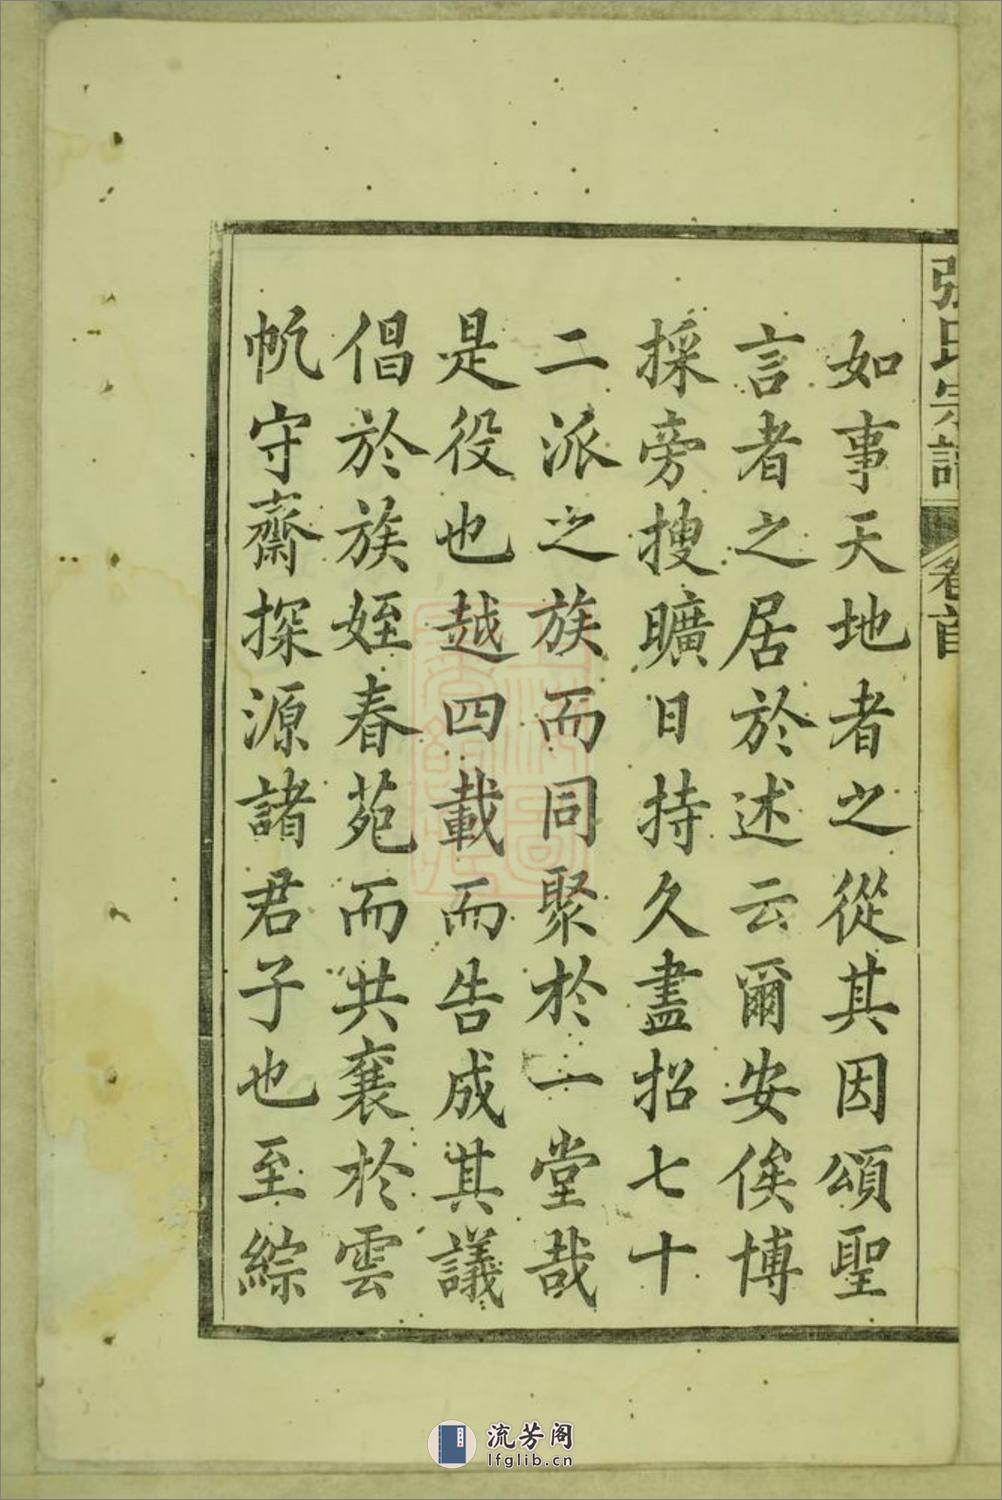 張氏宗譜 卷首
如事天地者之從其因頌聖
言者之居於述云爾安俟博
採旁搜曠日持久盡招七十
二派之族而同聚於一堂哉
是役也越四載而告成其議
倡於族姪春苑而共襄於雲
帆守齋探源諸君子也至綜
流芳阁
lfglib.cn